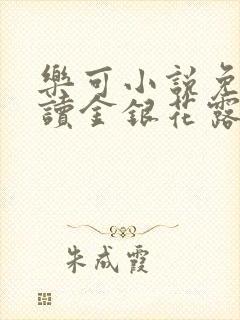 樂可小説免
讀金銀花露
朱成霞